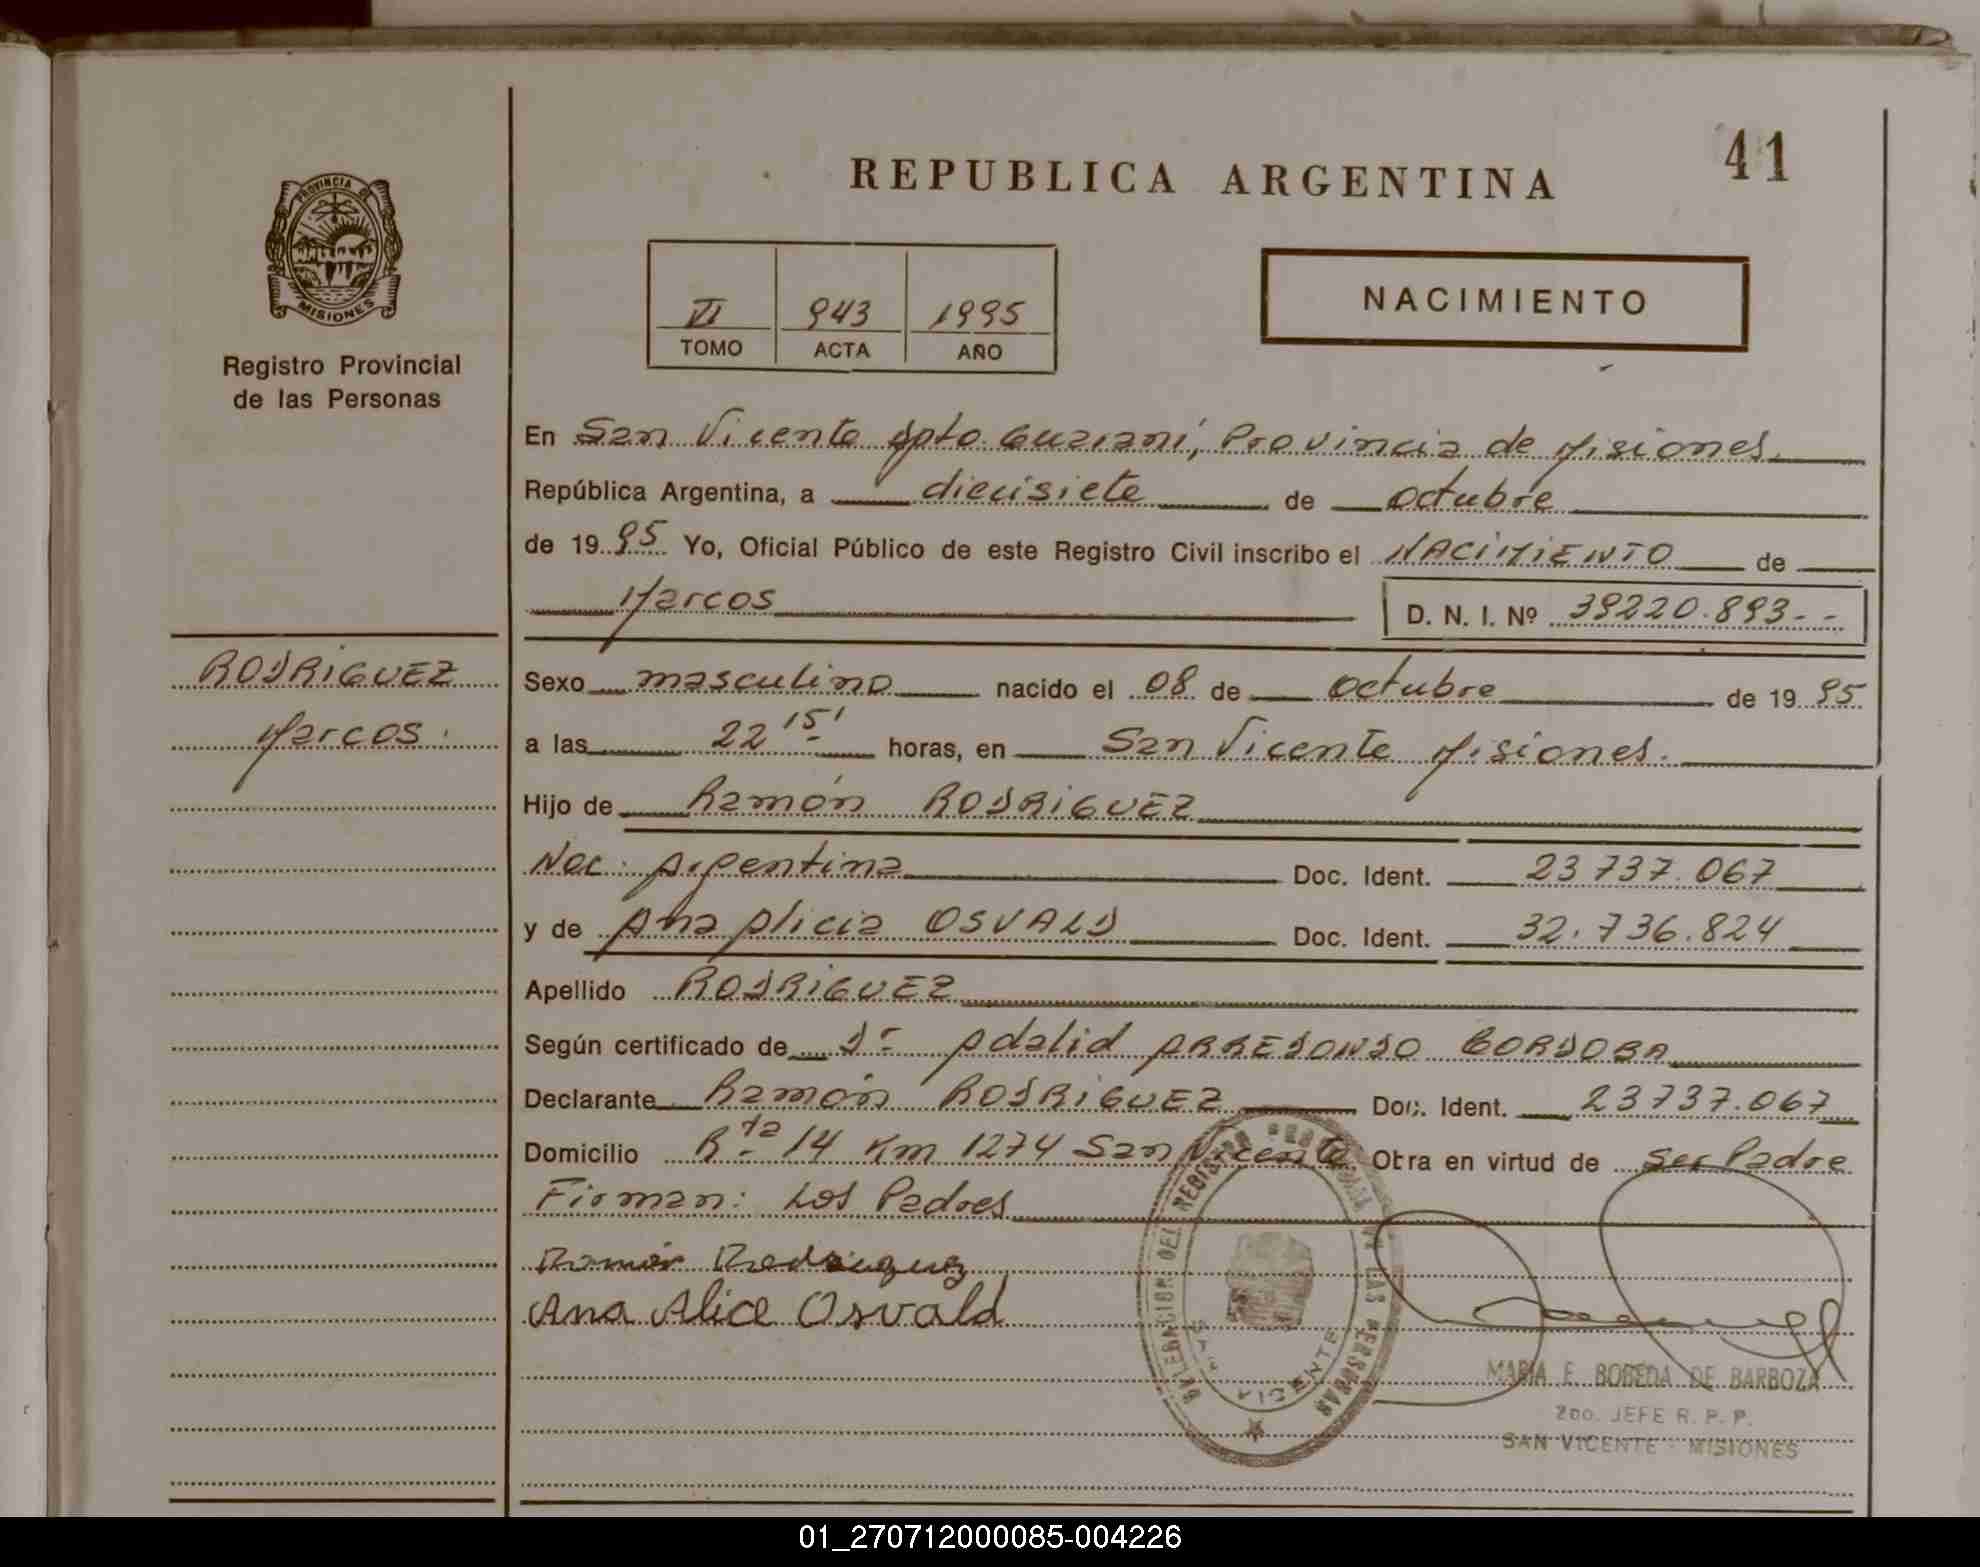 REPUBLICA ARGENTINA
41
PROVINCIA DE
MISIONES
Registro Provincial
de las Personas
VI 943 1995
TOMO ACTA AÑO
NACIMIENTO
En San Vicente dpto Guarani, Provincia de Misiones.
República Argentina, a diecisiete de octubre
de 1995 Yo, Oficial Público de este Registro Civil inscribo el NACIMIENTO de
Marcos
D. N. I. Nº 39220.893--
RODRIGUEZ
Marcos.
Sexo masculino nacido el 08 de octubre de 1995
a las 22 15' horas, en San Vicente Misiones.
Hijo de Ramón RODRIGUEZ
Nac. Argentina Doc. Ident. 23737.067
y de Ana Alicia OSVALD Doc. Ident. 32.736.824
Apellido RODRIGUEZ
Según certificado de Dr Adalid ARREDONDO CORDOBA
Declarante Ramón RODRIGUEZ Doc. Ident. 23737.067
Domicilio Rta 14 Km 1274 San Vicente Otra en virtud de ser Padre
Firman: Los Padres
Ramón Rodriguez
Ana Alice Osvald
DELEGACION DEL REGISTRO PROVINCIAL DE LAS PERSONAS
SAN VICENTE
MARIA E. BOBEDA DE BARBOZA
2do. JEFE R. P. P.
SAN VICENTE - MISIONES
01_270712000085-004226